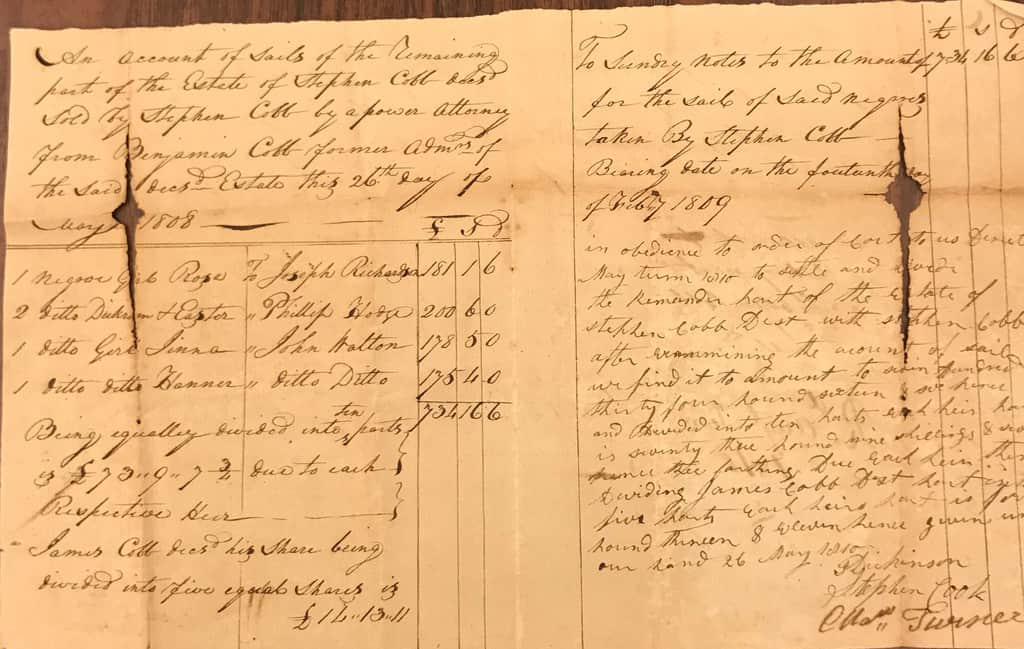 An account of Sails of the Remaining
part of the Estate of Stephen Cobb decsd
Sold by Stephen Cobb by a power Attorney
from Benjamin Cobb former Admr of
the said decsd Estate this 26th day of
May 1808
£ S d
1 Negroe Girl Rose To Joseph Richardson 181 1 6
2 ditto & Easter " Phillip Hodge 200 6 0
1 ditto Girl Jinna " John Walton 178 5 0
1 ditto ditto Hanner " ditto Ditto 175 4 0
734 16 6
Being equalley divided into ten parts
is £73 " 9 " 7 3/4 due to each
Respective Heir
James Cobb decsd his Share being
divided into five equal Shares is
£14 " 13 " 11
£ S d
To Sundry Notes to the Amount of 734 16 6
for the sails of Said negroes
taken By Stephen Cobb
Bearing date on the day
of Feby 1809
in obedience to order of Cort to us
May term 1810 to settle and devide
the Remander part of the Estate of
Stephen Cobb Dest with Stephen Cobb
after the acount of sails
we find it to amount to seven hundred
thirty four pound sixteen & six pence
and Devided into ten parts each heir
is seventy three pound nine shillings &
pence three farthing Due Each heir then
Deviding James Cobb Dest part
five parts Each heirs part is
pound & Eleven pence given
our hand 26 May 1810
Dickinson
Stephen Cook
Turner